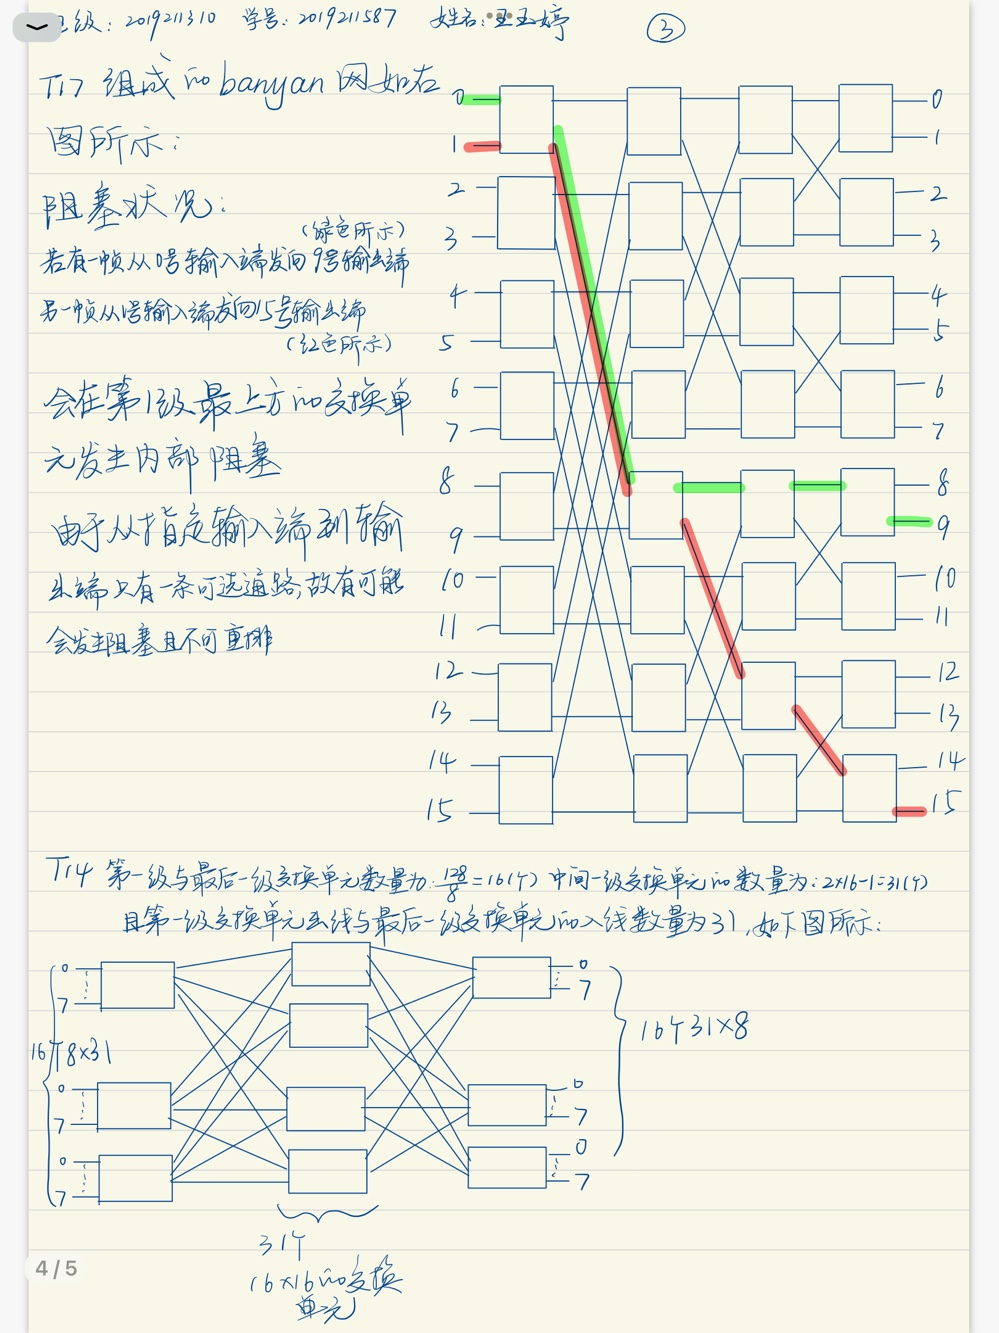 班级：2019211310 学号：2019211587 姓名：王玉婷 ③
T17 组成的banyan网如右
图所示：
阻塞状况：
（绿色所示）
若有一帧从0号输入端发向9号输出端
另一帧从1号输入端发向15号输出端
（红色所示）
会在第1级最上方的交换单
元发生内部阻塞
由于从指定输入端到输
出端只有一条可选通路,故有可能
会发生阻塞且不可重排
0 0
1 1
2 2
3 3
4 4
5 5
6 6
7 7
8 8
9 9
10 10
11 11
12 12
13 13
14 14
15 15
T14 第一级与最后一级交换单元数量为：128/8=16(个) 中间一级交换单元的数量为：2×16-1=31(个)
且第一级交换单元出线与最后一级交换单元的入线数量为31,如下图所示：
0 0
7 7
16个8×31
16个31×8
0 0
7 7
0 0
7 7
31个
16×16的交换
单元
4/5